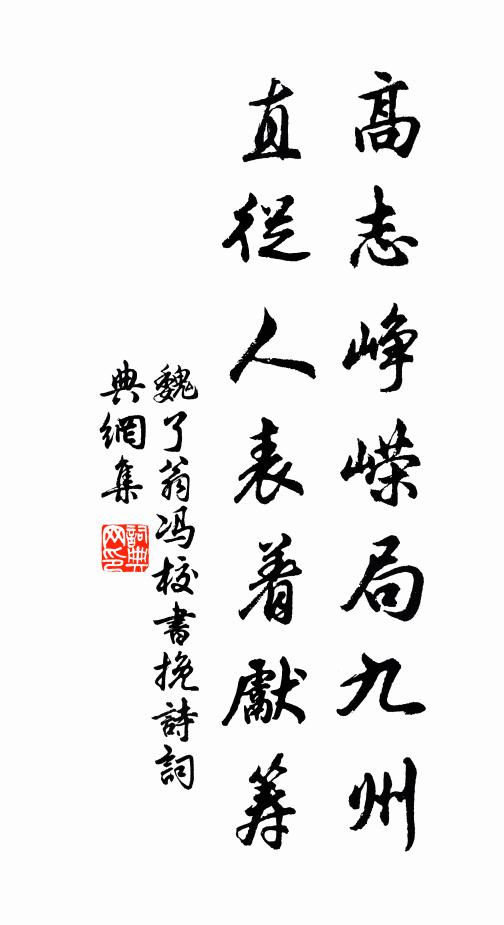 高志峥嶸局九州
直從人表着獻筹
魏了翁冯校書挽詩詞
典網集
詞典
网印